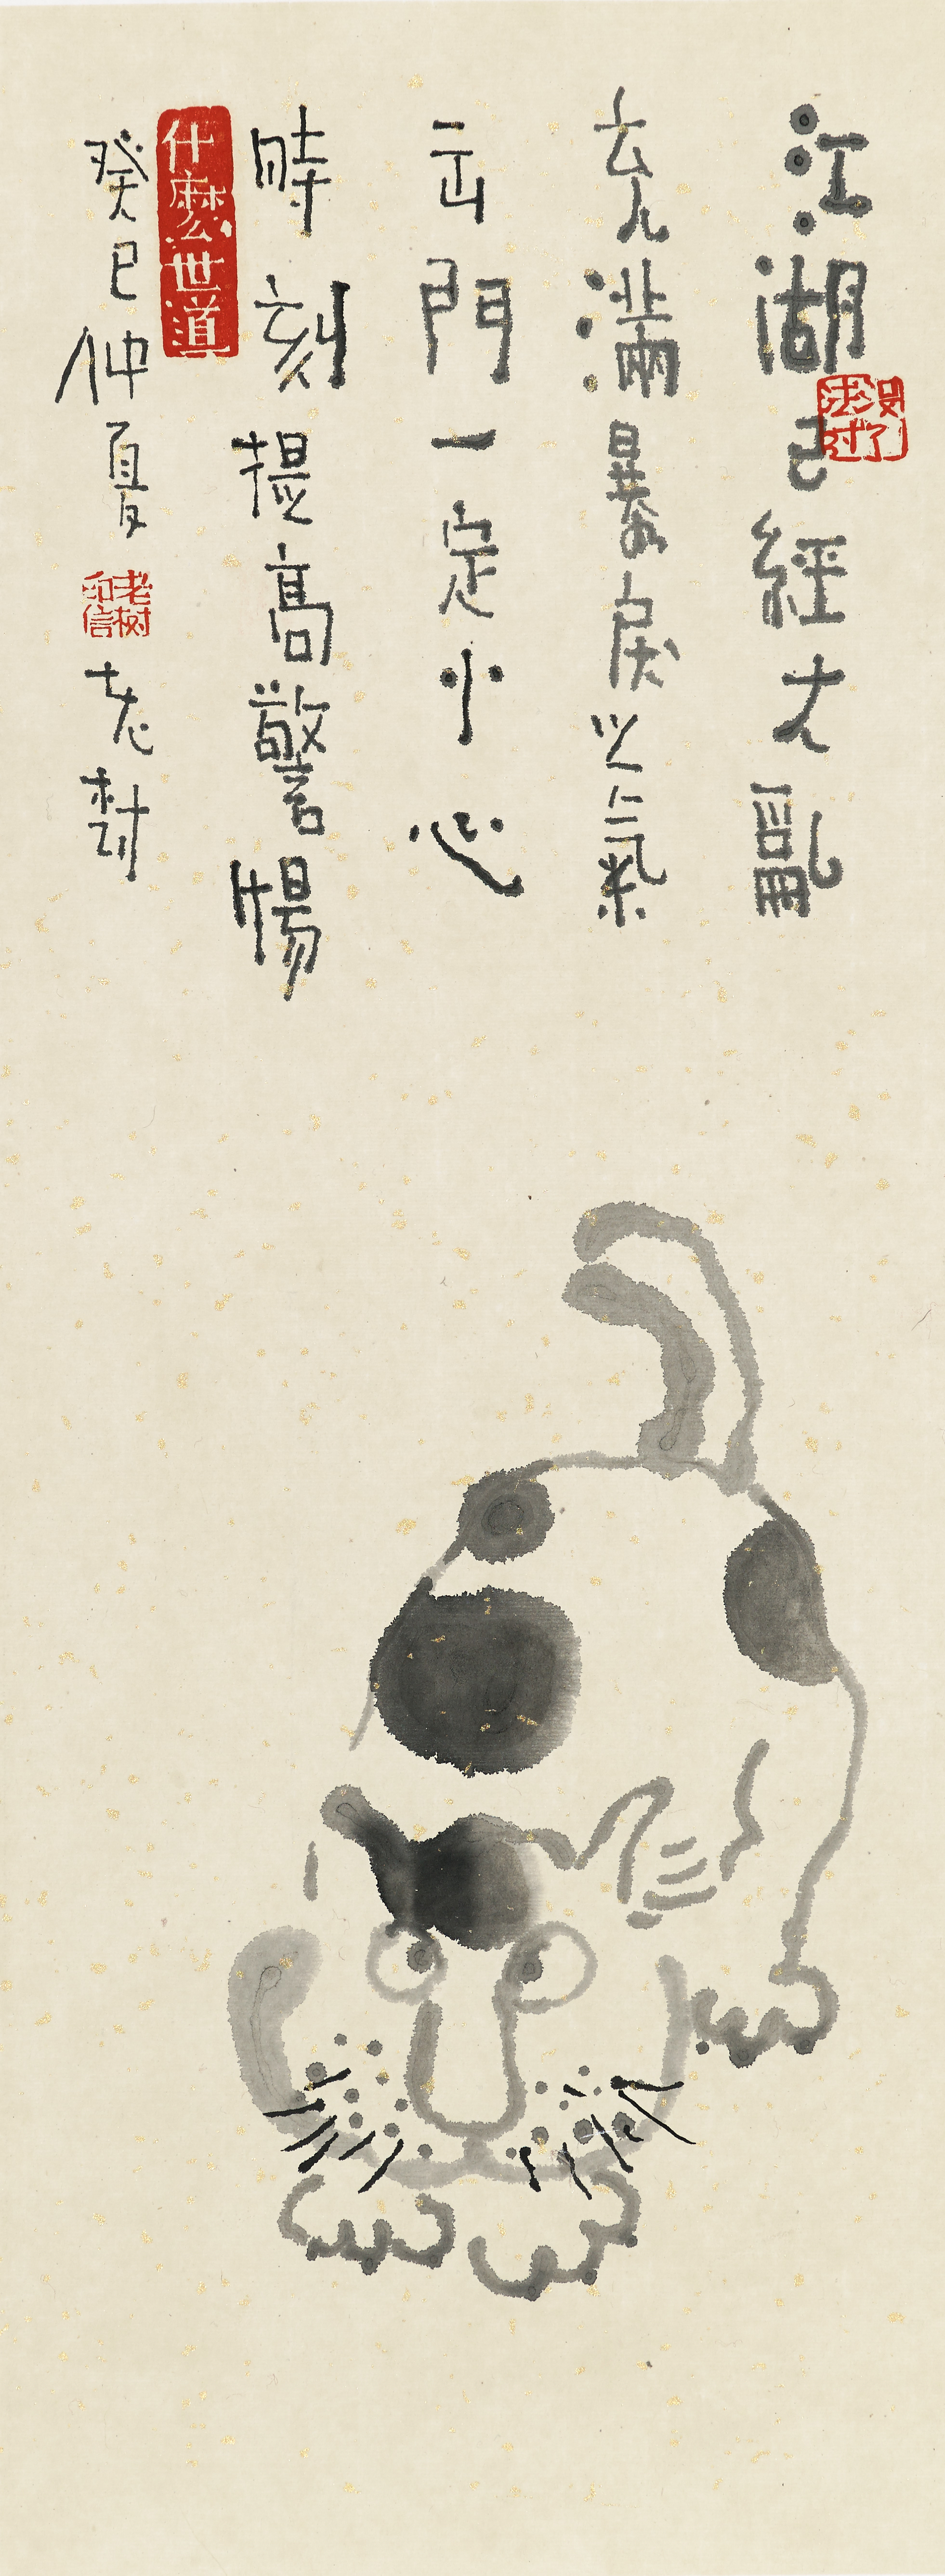 江湖已經大亂
充滿暴戾之氣
出門一定小心
時刻提高警惕
癸巳仲夏 老樹
没法过了
什麼世道
老树印信